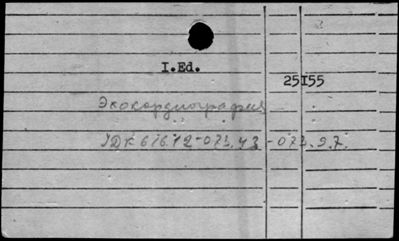 I.Ed.
25I55
Эхокардиография
УДК 616.12-073.43-073.97.